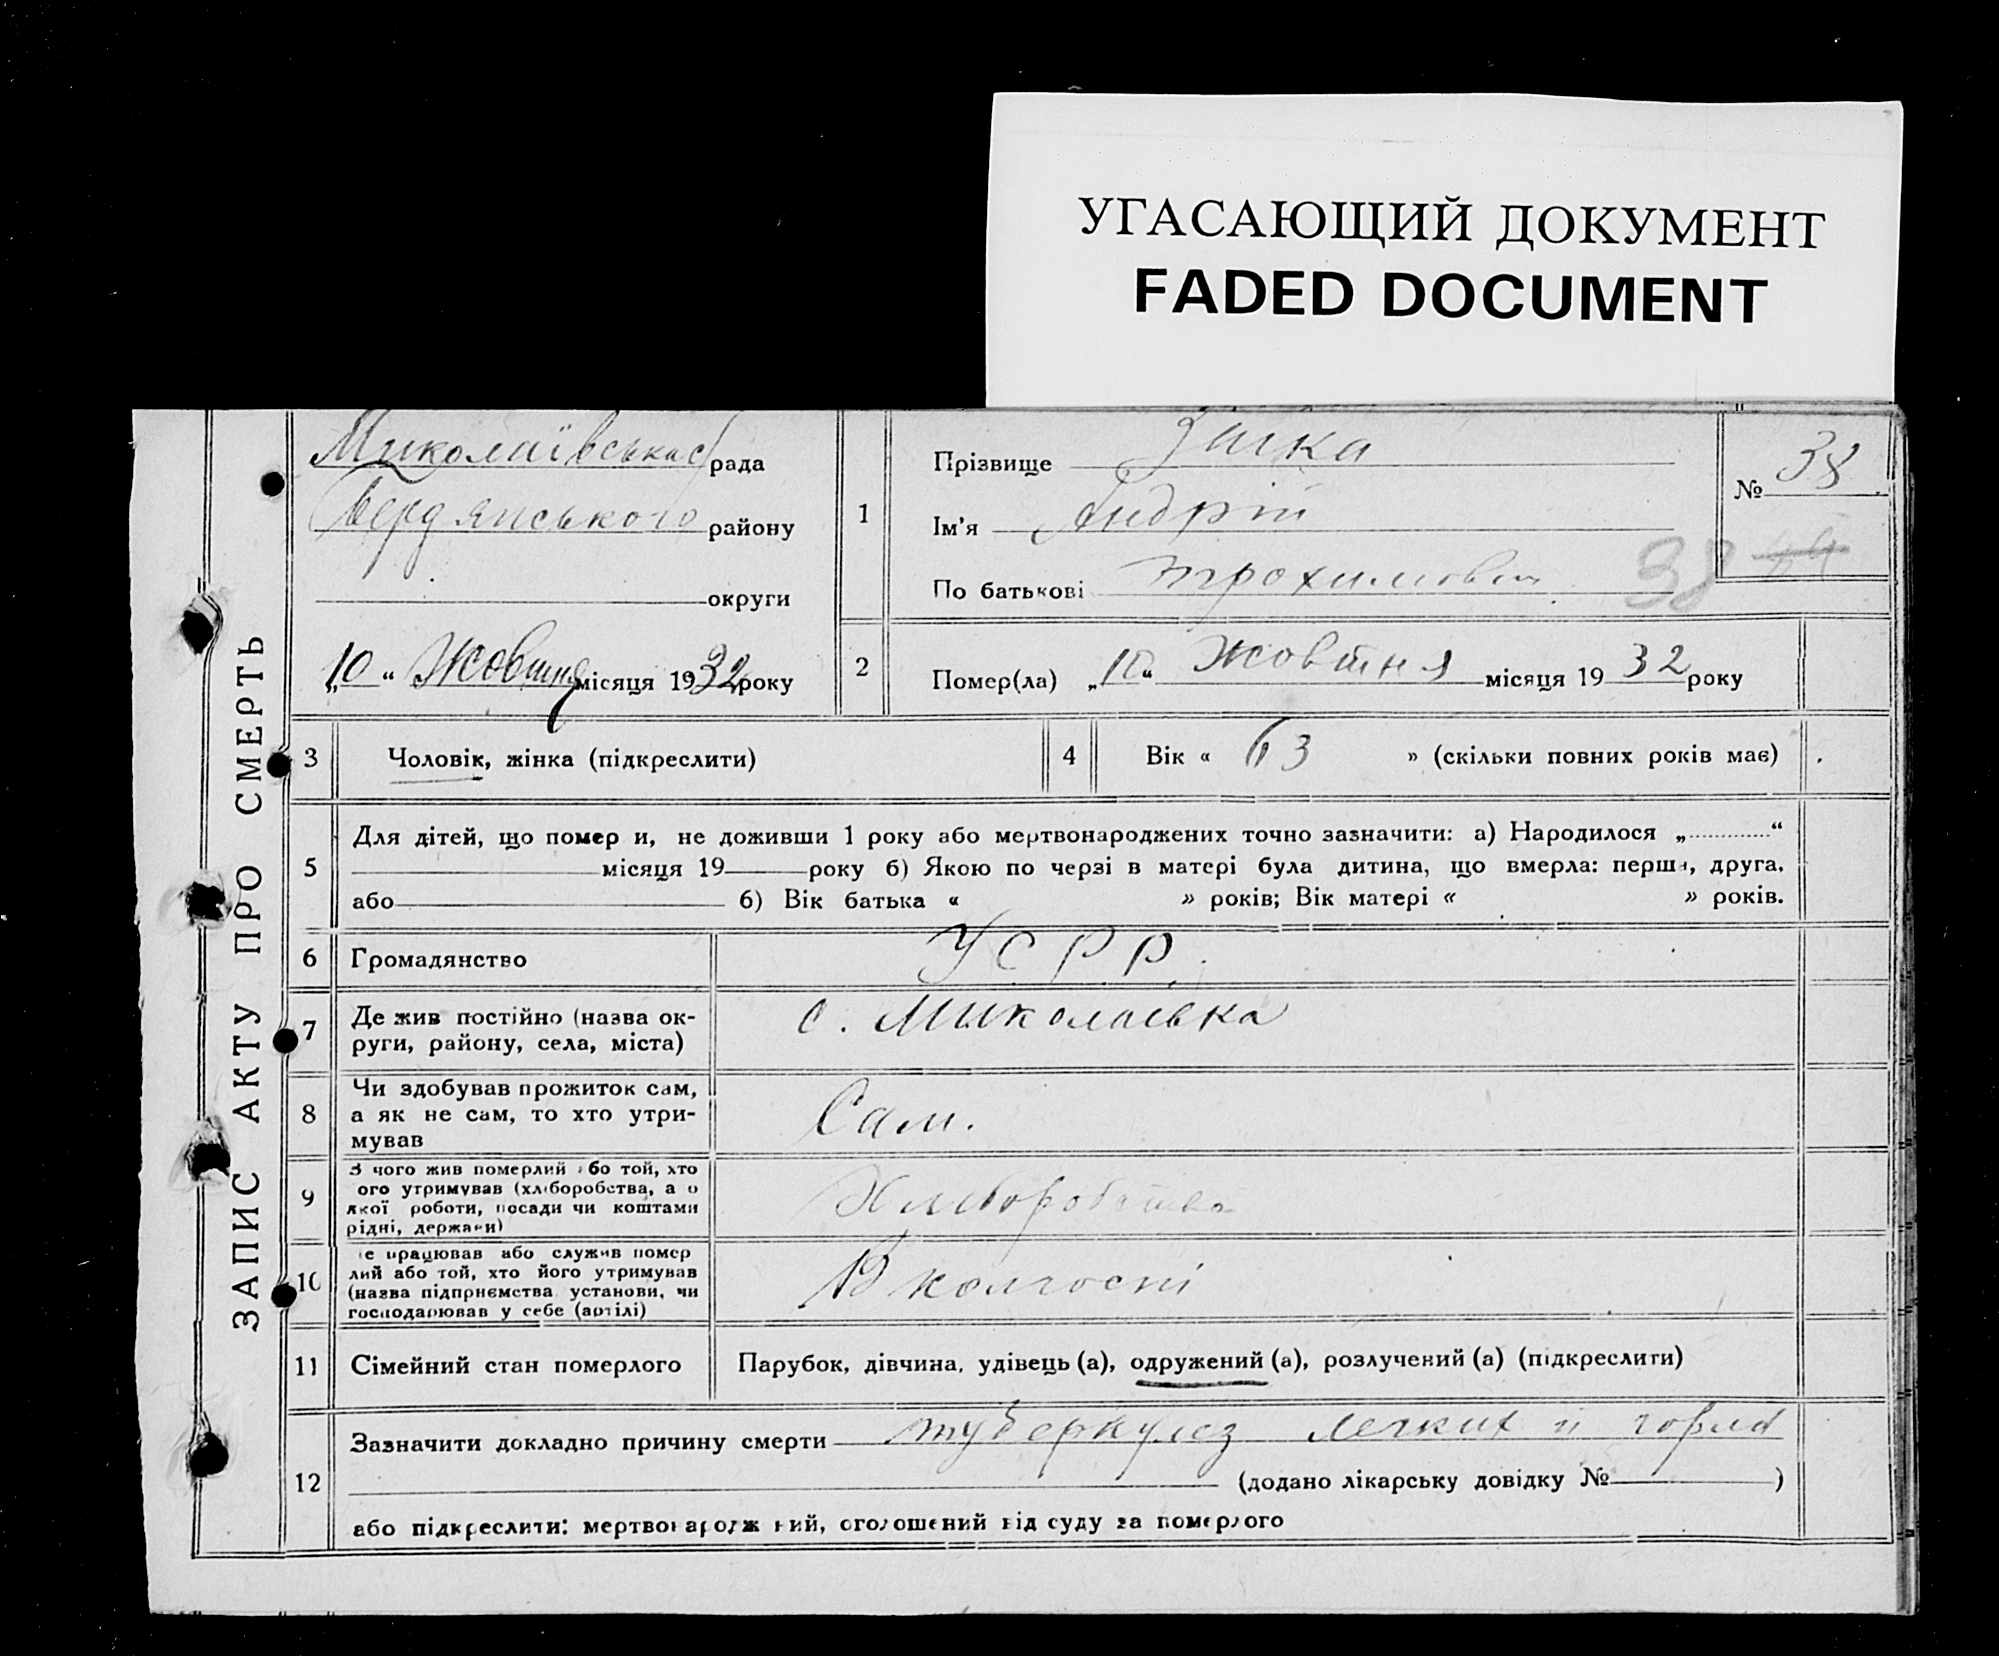 УГАСАЮЩИЙ ДОКУМЕНТ
FADED DOCUMENT
ЗАПИС АКТУ ПРО СМЕРТЬ
Миколаївська рада
Бердянського району
округи
„10“ Жовтня місяця 1932 року
1
Прізвище Заика
Ім'я Андрій
По батькові Трохимович
№ 38
38
2
Помер(ла) „10“ Жовтня місяця 1932 року
3
Чоловік, жінка (підкреслити)
4
Вік « 63 » (скільки повних років має)
5
Для дітей, що померли, не доживши 1 року або мертвонароджених точно зазначити: а) Народилося „ “
місяця 19 року б) Якою по черзі в матері була дитина, що вмерла: перша, друга,
або б) Вік батька « » років; Вік матері « » років.
6
Громадянство
УСРР.
7
Де жив постійно (назва ок-
руги, району, села, міста)
с. Миколаївка
8
Чи здобував прожиток сам,
а як не сам, то хто утри-
мував
Сам.
9
З чого жив померлий або той, хто
ого утримував (хліборобства, а о
якої роботи, посади чи коштами
рідні, держави)
Хліборобства
10
е працював або служив помер
лий або той, хто його утримував
(назва підприємства установи, чи
господарював у себе (артілі)
В колгоспі
11
Сімейний стан померлого
Парубок, дівчина, удівець (а), одружений (а), розлучений (а) (підкреслити)
12
Зазначити докладно причину смерти туберкулез легких и горла
(додано лікарську довідку № )
або підкреслити: мертвонароджений, оголошений від суду за померлого